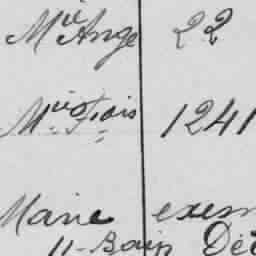 Mie Ange 22
Mie Frois 1241
Marie exem
11-Bain Dé